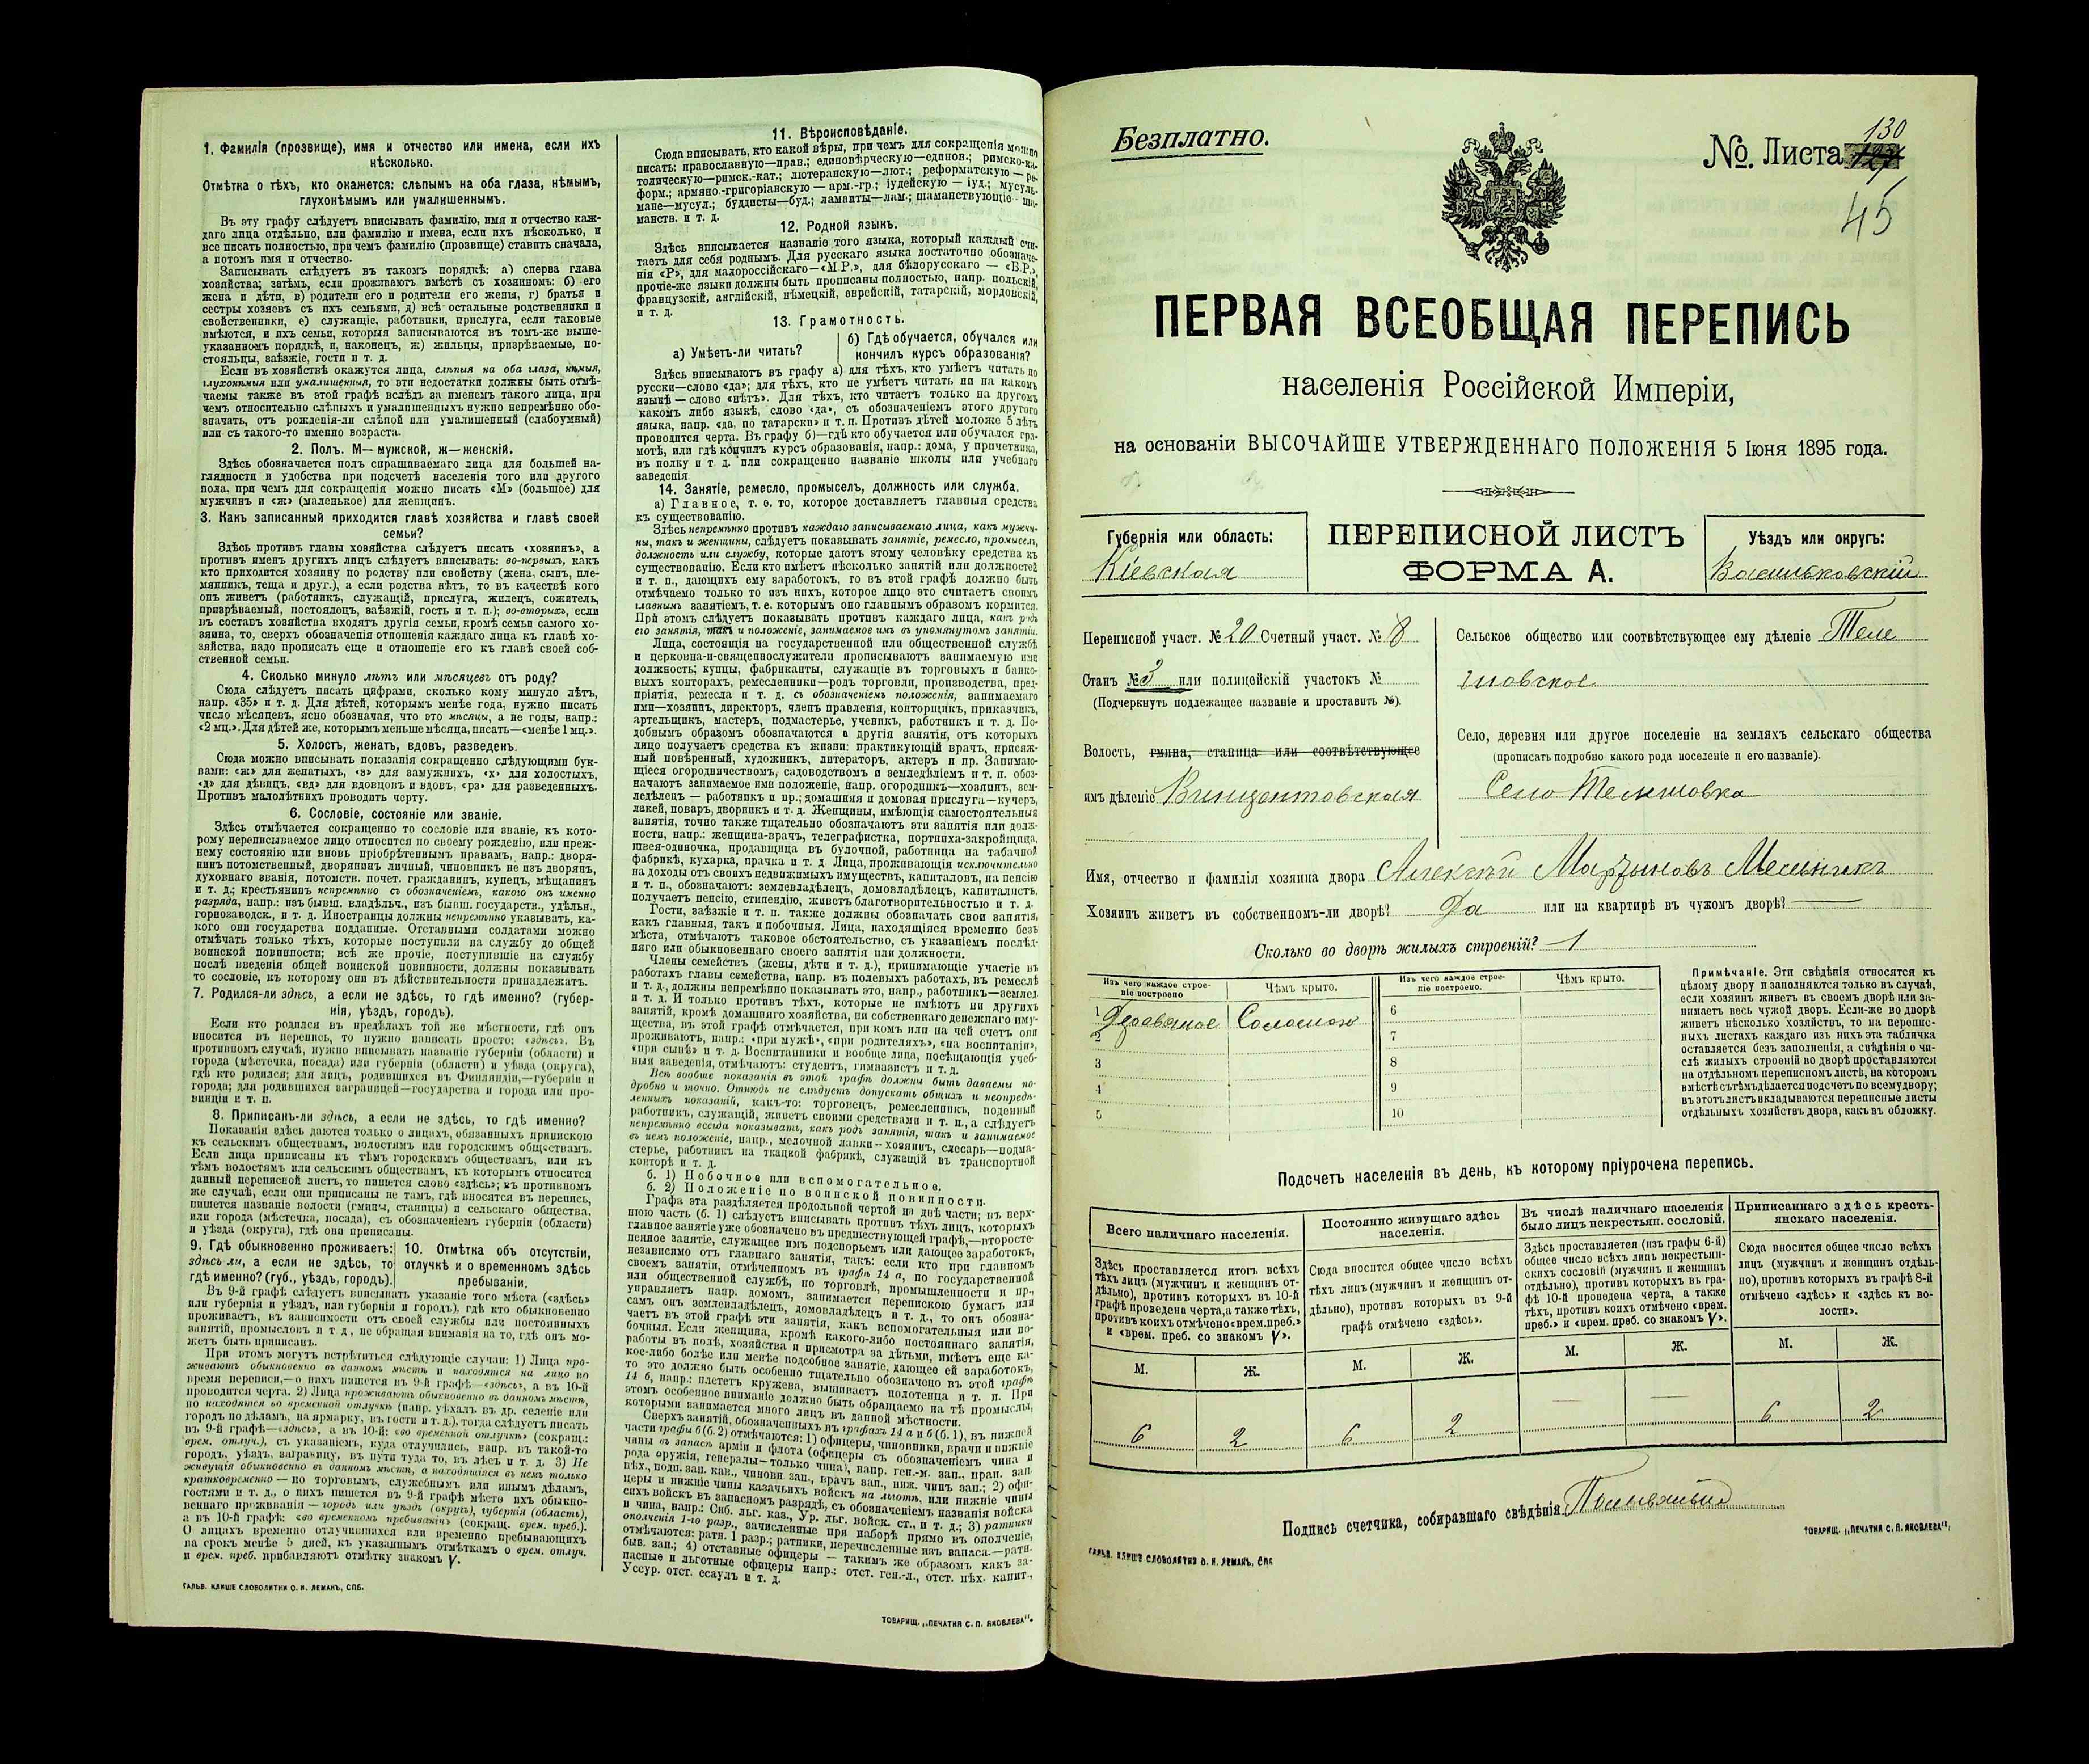 1. Фамилія (прозвище), имя и отчество или имена, если ихъ
нѣсколько.
Отмѣтка о тѣхъ, кто окажется: слѣпымъ на оба глаза, нѣмымъ,
глухонѣмымъ или умалишеннымъ.
Въ эту графу слѣдуетъ вписывать фамилію, имя и отчество каж-
даго лица отдѣльно, или фамилію и имена, если ихъ нѣсколько, и
все писать полностью, при чемъ фамилію (прозвище) ставить сначала,
а потомъ имя и отчество.
Записывать слѣдуетъ въ такомъ порядкѣ: а) сперва глава
хозяйства; затѣмъ, если проживаютъ вмѣстѣ съ хозяиномъ: б) его
жена и дѣти, в) родители его и родители его жены, г) братья и
сестры хозяевъ съ ихъ семьями, д) всѣ остальные родственники и
свойственники, е) служащіе, работники, прислуга, если таковые
имѣются, и ихъ семьи, которыя записываются въ томъ-же выше-
указанномъ порядкѣ, и, наконецъ, ж) жильцы, призрѣваемые, по-
стояльцы, заѣзжіе, гости и т. д.
Если въ хозяйствѣ окажутся лица, слѣпыя на оба глаза, нѣмыя,
глухонѣмыя или умалишенныя, то эти недостатки должны быть отмѣ-
чаемы также въ этой графѣ вслѣдъ за именемъ такого лица, при
чемъ относительно слѣпыхъ и умалишенныхъ нужно непремѣнно обо-
значать, отъ рожденія-ли слѣпой или умалишенный (слабоумный)
или съ такого-то именно возраста.
2. Полъ. М—мужской, ж—женскій.
Здѣсь обозначается полъ спрашиваемаго лица для большей на-
глядности и удобства при подсчетѣ населенія того или другого
пола, при чемъ для сокращенія можно писать «М» (большое) для
мужчинъ и «ж» (маленькое) для женщинъ.
3. Какъ записанный приходится главѣ хозяйства и главѣ своей
семьи?
Здѣсь противъ главы хозяйства слѣдуетъ писать «хозяинъ», а
противъ именъ другихъ лицъ слѣдуетъ вписывать: во-первыхъ, какъ
кто приходится хозяину по родству или свойству (жена, сынъ, пле-
мянникъ, теща и друг.), а если родства нѣтъ, то въ качествѣ кого
онъ живетъ (работникъ, служащій, прислуга, жилецъ, сожитель,
призрѣваемый, постоялецъ, заѣзжій, гость и т. п.); во-вторыхъ, если
въ составъ хозяйства входятъ другія семьи, кромѣ семьи самого хо-
зяина, то, сверхъ обозначенія отношенія каждаго лица къ главѣ хо-
зяйства, надо прописать еще и отношеніе его къ главѣ своей соб-
ственной семьи.
4. Сколько минуло лѣтъ или мѣсяцевъ отъ роду?
Сюда слѣдуетъ писать цифрами, сколько кому минуло лѣтъ,
напр. «35» и т. д. Для дѣтей, которымъ менѣе года, нужно писать
число мѣсяцевъ, ясно обозначая, что это мѣсяцы, а не годы, напр.:
«2 мц.». Для дѣтей же, которымъ меньше мѣсяца, писать—«менѣе 1 мц.».
5. Холостъ, женатъ, вдовъ, разведенъ.
Сюда можно вписывать показанія сокращенно слѣдующими бук-
вами: «ж» для женатыхъ, «з» для замужнихъ, «х» для холостыхъ,
«д» для дѣвицъ, «вд» для вдовцовъ и вдовъ, «рз» для разведенныхъ.
Противъ малолѣтнихъ проводить черту.
6. Сословіе, состояніе или званіе.
Здѣсь отмѣчается сокращенно то сословіе или званіе, къ кото-
рому переписываемое лицо относится по своему рожденію, или преж-
нему состоянію или вновь пріобрѣтеннымъ правамъ, напр.: дворя-
нинъ потомственный, дворянинъ личный, чиновникъ не изъ дворянъ,
духовнаго званія, потомств. почет. гражданинъ, купецъ, мѣщанинъ
и т. д.; крестьянинъ непремѣнно съ обозначеніемъ, какого онъ именно
разряда, напр.: изъ бывш. владѣльч., изъ бывш. государств., удѣльн.,
горнозаводск., и т. д. Иностранцы должны непремѣнно указывать, ка-
кого они государства подданные. Отставными солдатами можно
отмѣчать только тѣхъ, которые поступили на службу до общей
воинской повинности; всѣ же прочіе, поступившіе на службу
послѣ введенія общей воинской повинности, должны показывать
то сословіе, къ которому они въ дѣйствительности принадлежатъ.
7. Родился-ли здѣсь, а если не здѣсь, то гдѣ именно? (губер-
нія, уѣздъ, городъ).
Если кто родился въ предѣлахъ той же мѣстности, гдѣ онъ
вносится въ перепись, то нужно написать просто: «здѣсь». Въ
противномъ случаѣ, нужно вписывать названіе губерніи (области) и
города (мѣстечка, посада) или губерніи (области) и уѣзда (округа),
гдѣ кто родился; для лицъ, родившихся въ Финляндіи,—губерніи и
города; для родившихся заграницей—государства и города или про-
винціи и т. п.
8. Приписанъ-ли здѣсь, а если не здѣсь, то гдѣ именно?
Показанія здѣсь даются только о лицахъ, обязанныхъ припискою
къ сельскимъ обществамъ, волостямъ или городскимъ обществамъ.
Если лица приписаны къ тѣмъ городскимъ обществамъ, или къ
тѣмъ волостямъ или сельскимъ обществамъ, къ которымъ относится
данный переписной листъ, то пишется слово «здѣсь»; въ противномъ
же случаѣ, если они приписаны не тамъ, гдѣ вносятся въ перепись,
пишется названіе волости (гмины, станицы) и сельскаго общества,
или города (мѣстечка, посада), съ обозначеніемъ губерніи (области)
и уѣзда (округа), гдѣ они приписаны.
9. Гдѣ обыкновенно проживаетъ:
здѣсь ли, а если не здѣсь, то
гдѣ именно? (губ., уѣздъ, городъ).
10. Отмѣтка объ отсутствіи,
отлучкѣ и о временномъ здѣсь
пребываніи.
Въ 9-й графѣ слѣдуетъ вписывать указаніе того мѣста («здѣсь»
или губернія и уѣздъ, или губернія и городъ), гдѣ кто обыкновенно
проживаетъ, въ зависимости отъ своей службы или постоянныхъ
занятій, промысловъ и т. д., не обращая вниманія на то, гдѣ онъ мо-
жетъ быть приписанъ.
При этомъ могутъ встрѣтиться слѣдующіе случаи: 1) Лица про-
живаютъ обыкновенно въ данномъ мѣстѣ и находятся на лицо во
время переписи,—о нихъ пишется въ 9-й графѣ—«здѣсь», а въ 10-й
проводится черта. 2) Лица проживаютъ обыкновенно въ данномъ мѣстѣ,
но находятся во временной отлучкѣ (напр. уѣхалъ въ др. селеніе или
городъ по дѣламъ, на ярмарку, въ гости и т. д.). тогда слѣдуетъ писать
въ 9-й графѣ—«здѣсь», а въ 10-й: «во временной отлучкѣ» (сокращ.:
врем. отлуч.), съ указаніемъ, куда отлучились, напр. въ такой-то
городъ, уѣздъ, заграницу, въ пути туда то, въ лѣсъ и т. д. 3) Не
живущія обыкновенно въ данномъ мѣстѣ, а находящіяся въ немъ только
кратковременно — по торговымъ, служебнымъ или инымъ дѣламъ,
гостями и т. д., о нихъ пишется въ 9-й графѣ мѣсто ихъ обыкно-
веннаго проживанія — городъ или уѣздъ (округъ), губернія (область),
а въ 10-й графѣ: «во временномъ пребываніи» (сокращ. врем. преб.).
О лицахъ временно отлучившихся или временно пребывающихъ
на срокъ менѣе 5 дней, къ указаннымъ отмѣткамъ о врем. отлуч.
и врем. преб. прибавляютъ отмѣтку знакомъ V.
ГАЛЬВ. КЛИШЕ СЛОВОЛИТНИ О. И. ЛЕМАНЪ, СПБ.
11. Вѣроисповѣданіе.
Сюда вписывать, кто какой вѣры, при чемъ для сокращенія можно
писать: православную—прав.; единовѣрческую—единов.; римско-ка-
толическую—римск.-кат.; лютеранскую—лют.; реформатскую — ре-
форм.; армяно-григоріанскую — арм.-гр.; іудейскую — іуд.; мусуль-
мане—мусул.; буддисты—буд.; ламаиты—лам.; шаманствующіе—ша-
манств. и т. д.
12. Родной языкъ.
Здѣсь вписывается названіе того языка, который каждый счи-
таетъ для себя роднымъ. Для русскаго языка достаточно обозначе-
нія «Р», для малороссійскаго—«М.Р.», для бѣлорусскаго — «Б.Р.»,
прочіе-же языки должны быть прописаны полностью, напр. польскій,
французскій, англійскій, нѣмецкій, еврейскій, татарскій, мордовскій,
и т. д.
13. Грамотность.
а) Умѣетъ-ли читать?
б) Гдѣ обучается, обучался или
кончилъ курсъ образованія?
Здѣсь вписываютъ въ графу а) для тѣхъ, кто умѣетъ читать по
русски—слово «да»; для тѣхъ, кто не умѣетъ читать ни на какомъ
языкѣ — слово «нѣтъ». Для тѣхъ, кто читаетъ только на другомъ
какомъ либо языкѣ, слово «да», съ обозначеніемъ этого другого
языка, напр. «да, по татарски» и т. п. Противъ дѣтей моложе 5 лѣтъ
проводится черта. Въ графу б)—гдѣ кто обучается или обучался гра-
мотѣ, или гдѣ кончилъ курсъ образованія, напр.: дома, у причетника,
въ полку и т. д. или сокращенно названіе школы или учебнаго
заведенія.
14. Занятіе, ремесло, промыселъ, должность или служба.
а) Главное, т. е. то, которое доставляетъ главныя средства
къ существованію.
Здѣсь непремѣнно противъ каждаго записываемаго лица, какъ мужчи-
ны, такъ и женщины, слѣдуетъ показывать занятіе, ремесло, промыселъ,
должность или службу, которые даютъ этому человѣку средства къ
существованію. Если кто имѣетъ нѣсколько занятій или должностей
и т. п., дающихъ ему заработокъ, то въ этой графѣ должно быть
отмѣчаемо только то изъ нихъ, которое лицо это считаетъ своимъ
главнымъ занятіемъ, т. е. которымъ оно главнымъ образомъ кормится.
При этомъ слѣдуетъ показывать противъ каждаго лица, какъ родъ
его занятія, такъ и положеніе, занимаемое имъ въ упомянутомъ занятіи.
Лица, состоящія на государственной или общественной службѣ
и церковно-и-священнослужители прописываютъ занимаемую ими
должность; купцы, фабриканты, служащіе въ торговыхъ и банко-
выхъ конторахъ, ремесленники—родъ торговли, производства, пред-
пріятія, ремесла и т. д. съ обозначеніемъ положенія, занимаемаго
ими—хозяинъ, директоръ, членъ правленія, конторщикъ, приказчикъ,
артельщикъ, мастеръ, подмастерье, ученикъ, работникъ и т. д. По-
добнымъ образомъ обозначаются и другія занятія, отъ которыхъ
лицо получаетъ средства къ жизни: практикующій врачъ, присяж-
ный повѣренный, художникъ, литераторъ, актеръ и пр. Занимаю-
щіеся огородничествомъ, садоводствомъ и земледѣліемъ и т. п. обоз-
начаютъ занимаемое ими положеніе, напр. огородникъ—хозяинъ, зем-
ледѣлецъ — работникъ и пр.; домашняя и домовая прислуга—кучеръ,
лакей, поваръ, дворникъ и т. д. Женщины, имѣющія самостоятельныя
занятія, точно также тщательно обозначаютъ эти занятія или долж-
ности, напр.: женщина-врачъ, телеграфистка, портниха-закройщица,
швея-одиночка, продавщица въ булочной, работница на табачной
фабрикѣ, кухарка, прачка и т. д. Лица, проживающія исключительно
на доходы отъ своихъ недвижимыхъ имуществъ, капиталовъ, на пенсію
и т. п., обозначаютъ: землевладѣлецъ, домовладѣлецъ, капиталистъ,
получаетъ пенсію, стипендію, живетъ благотворительностью и т. д.
Гости, заѣзжіе и т. п. также должны обозначать свои занятія,
какъ главныя, такъ и побочныя. Лица, находящіяся временно безъ
мѣста, отмѣчаютъ таковое обстоятельство, съ указаніемъ послѣд-
няго или обыкновеннаго своего занятія или должности.
Члены семействъ (жены, дѣти и т. д.), принимающіе участіе въ
работахъ главы семейства, напр. въ полевыхъ работахъ, въ ремеслѣ
и т. д., должны непремѣнно показывать это, напр., работникъ—землед.
и т. д. И только противъ тѣхъ, которые не имѣютъ ни другихъ
занятій, кромѣ домашняго хозяйства, ни собственнаго денежнаго иму-
щества, въ этой графѣ отмѣчается, при комъ или на чей счетъ они
проживаютъ, напр.: «при мужѣ», «при родителяхъ», «на воспитаніи»,
«при сынѣ» и т. д. Воспитанники и вообще лица, посѣщающія учеб-
ныя заведенія, отмѣчаютъ: студентъ, гимназистъ и т. д.
Всѣ вообще показанія въ этой графѣ должны быть даваемы по-
дробно и точно. Отнюдь не слѣдуетъ допускать общихъ и неопредѣ-
ленныхъ показаній, какъ-то: торговецъ, ремесленникъ, поденный
работникъ, служащій, живетъ своими средствами и т. п., а слѣдуетъ
непремѣнно всегда показывать, какъ родъ занятія, такъ и занимаемое
въ немъ положеніе, напр., мелочной лавки—хозяинъ, слесарь—подма-
стерье, работникъ на ткацкой фабрикѣ, служащій въ транспортной
конторѣ и т. д.
б. 1) Побочное или вспомогательное.
б. 2) Положеніе по воинской повинности.
Графа эта раздѣляется продольной чертой на двѣ части; въ верх-
нюю часть (б. 1) слѣдуетъ вписывать противъ тѣхъ лицъ, которыхъ
главное занятіе уже обозначено въ предшествующей графѣ,—второсте-
пенное занятіе, служащее имъ подспорьемъ или дающее заработокъ,
независимо отъ главнаго занятія, такъ: если кто при главномъ
своемъ занятіи, отмѣченномъ въ графѣ 14 а, по государственной
или общественной службѣ, по торговлѣ, промышленности и пр.,
управляетъ напр. домомъ, занимается перепискою бумагъ или
самъ онъ землевладѣлецъ, домовладѣлецъ и т. д., то онъ обозна-
чаетъ въ этой графѣ эти занятія, какъ вспомогательныя или по-
бочныя. Если женщина, кромѣ какого-либо постояннаго занятія,
работы въ полѣ, хозяйства и присмотра за дѣтьми, имѣетъ еще ка-
кое-либо болѣе или менѣе подсобное занятіе, дающее ей заработокъ,
то это должно быть особенно тщательно обозначено въ этой графѣ
14 б, напр.: плететъ кружева, вышиваетъ полотенца и т. п. При
этомъ особенное вниманіе должно быть обращаемо на тѣ промыслы,
которыми занимается много лицъ въ данной мѣстности.
Сверхъ занятій, обозначенныхъ въ графахъ 14 а и б (б. 1), въ нижней
части графы б (б. 2) отмѣчаются: 1) офицеры, чиновники, врачи и нижніе
чины въ запасѣ арміи и флота (офицеры съ обозначеніемъ чина и
рода оружія, генералы—только чина), напр. ген.-м. зап., прап. зап.
пѣх., подп. зап. кав., чиновн. зап., врачъ зап., ниж. чинъ зап.; 2) офи-
церы и нижніе чины казачьихъ войскъ на льготѣ, или нижніе чины
сихъ войскъ въ запасномъ разрядѣ, съ обозначеніемъ названія войска
и чина, напр.: Сиб. льг. каз., Ур. льг. войск. ст., и т. д.; 3) ратники
ополченія 1-го разр., зачисленные при наборѣ прямо въ ополченіе,
отмѣчаются: ратн. 1 разр.; ратники, перечисленные изъ запаса.—ратн.
быв. зап.; 4) отставные офицеры — такимъ же образомъ какъ за-
пасные и льготные офицеры напр.: отст. ген.-л., отст. пѣх. капит.,
Уссур. отст. есаулъ и т. д.
ТОВАРИЩ. „ПЕЧАТНЯ С. П. ЯКОВЛЕВА“.
Безплатно.
130
№. Листа 127
45
ПЕРВАЯ ВСЕОБЩАЯ ПЕРЕПИСЬ
населенія Россійской Имперіи,
на основаніи ВЫСОЧАЙШЕ УТВЕРЖДЕННАГО ПОЛОЖЕНІЯ 5 Іюня 1895 года.
Губернія или область:
Кіевская
ПЕРЕПИСНОЙ ЛИСТЪ
ФОРМА А.
Уѣздъ или округъ:
Васильковскій
Переписной участ. № 20 Счетный участ. № 8
Станъ № 3 или полицейскій участокъ №
(Подчеркнуть подлежащее названіе и проставить №).
Волость, гмина, станица или соотвѣтствующее
имъ дѣленіе Винцентовская
Сельское общество или соотвѣтствующее ему дѣленіе Теле
шовское
Село, деревня или другое поселеніе на земляхъ сельскаго общества
(прописать подробно какого рода поселеніе и его названіе).
Село Телешовка
Имя, отчество и фамилія хозяина двора Алексѣй Мартыновъ Мельникъ
Хозяинъ живетъ въ собственномъ-ли дворѣ? Да или на квартирѣ въ чужомъ дворѣ? —
Сколько во дворѣ жилыхъ строеній? 1
Изъ чего каждое строе-
ніе построено
Чѣмъ крыто.
Изъ чего каждое строе-
ніе построено.
Чѣмъ крыто.
1 Деревяное Соломою 6
2 7
3 8
4 9
5 10
Примѣчаніе. Эти свѣдѣнія относятся къ
цѣлому двору и заполняются только въ случаѣ,
если хозяинъ живетъ въ своемъ дворѣ или за-
нимаетъ весь чужой дворъ. Если-же во дворѣ
живетъ нѣсколько хозяйствъ, то на перепис-
ныхъ листахъ каждаго изъ нихъ эта табличка
оставляется безъ заполненія, а свѣдѣнія о чи-
слѣ жилыхъ строеній во дворѣ проставляются
на отдѣльномъ переписномъ листѣ, на которомъ
вмѣстѣ съ тѣмъ дѣлается подсчетъ по всему двору;
въ этотъ листъ вкладываются переписные листы
отдѣльныхъ хозяйствъ двора, какъ въ обложку.
Подсчетъ населенія въ день, къ которому пріурочена перепись.
Всего наличнаго населенія.
Здѣсь проставляется итогъ всѣхъ
тѣхъ лицъ (мужчинъ и женщинъ от-
дѣльно), противъ которыхъ въ 10-й
графѣ проведена черта, а также тѣхъ,
противъ коихъ отмѣчено «врем. преб.»
и «врем. преб. со знакомъ V».
Постоянно живущаго здѣсь
населенія.
Сюда вносится общее число всѣхъ
тѣхъ лицъ (мужчинъ и женщинъ от-
дѣльно), противъ которыхъ въ 9-й
графѣ отмѣчено «здѣсь».
Въ числѣ наличнаго населенія
было лицъ некрестьян. сословій.
Здѣсь проставляется (изъ графы 6-й)
общее число всѣхъ лицъ некрестьян-
скихъ сословій (мужчинъ и женщинъ
отдѣльно), противъ которыхъ въ гра-
фѣ 10-й проведена черта, а также
тѣхъ, противъ коихъ отмѣчено «врем.
преб.» и «врем. преб. со знакомъ V».
Приписаннаго здѣсь кресть-
янскаго населенія.
Сюда вносится общее число всѣхъ
лицъ (мужчинъ и женщинъ отдѣль-
но), противъ которыхъ въ графѣ 8-й
отмѣчено «здѣсь» и «здѣсь къ во-
лости».
М. Ж. М. Ж. М. Ж. М. Ж.
6 2 6 2 — — 6 2
Подпись счетчика, собиравшаго свѣдѣнія
ГАЛЬВ. КЛИШЕ СЛОВОЛИТНИ О. И. ЛЕМАНЪ, СПБ
ТОВАРИЩ. „ПЕЧАТНЯ С. П. ЯКОВЛЕВА“,